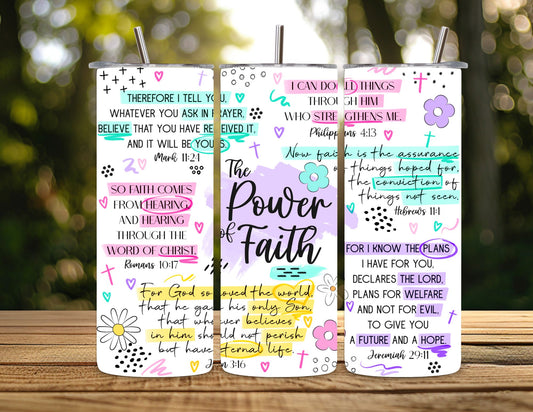 THEREFORE I TELL YOU,
WHATEVER YOU ASK IN PRAYER,
BELIEVE THAT YOU HAVE RECEIVED IT,
AND IT WILL BE YOURS.
Mark 11:24
SO FAITH COMES
FROM HEARING,
AND HEARING
THROUGH THE
WORD OF CHRIST.
Romans 10:17
The
Power
of
Faith
For God so loved the world,
that he gave his only Son,
that whoever believes
in him should not perish
but have eternal life.
3:16
I CAN DO THINGS
THROUGH HIM
WHO STRENGTHENS ME.
Philippians 4:13
Now faith is the assurance
of things hoped for,
the conviction of
things not seen.
Hebrews 11:1
FOR I KNOW THE PLANS
I HAVE FOR YOU,
DECLARES THE LORD,
PLANS FOR WELFARE
AND NOT FOR EVIL,
TO GIVE YOU
A FUTURE AND A HOPE.
Jeremiah 29:11